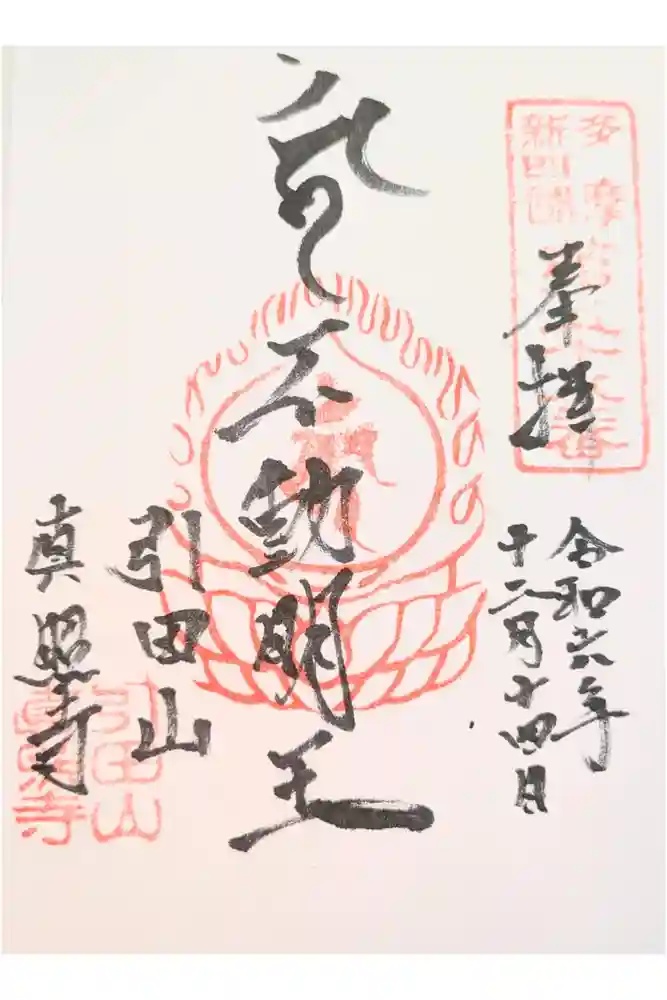 多摩
新四国
奉拝
令和六年
十二月十四日
不動明王
引田山
真照寺
引田山
真照寺